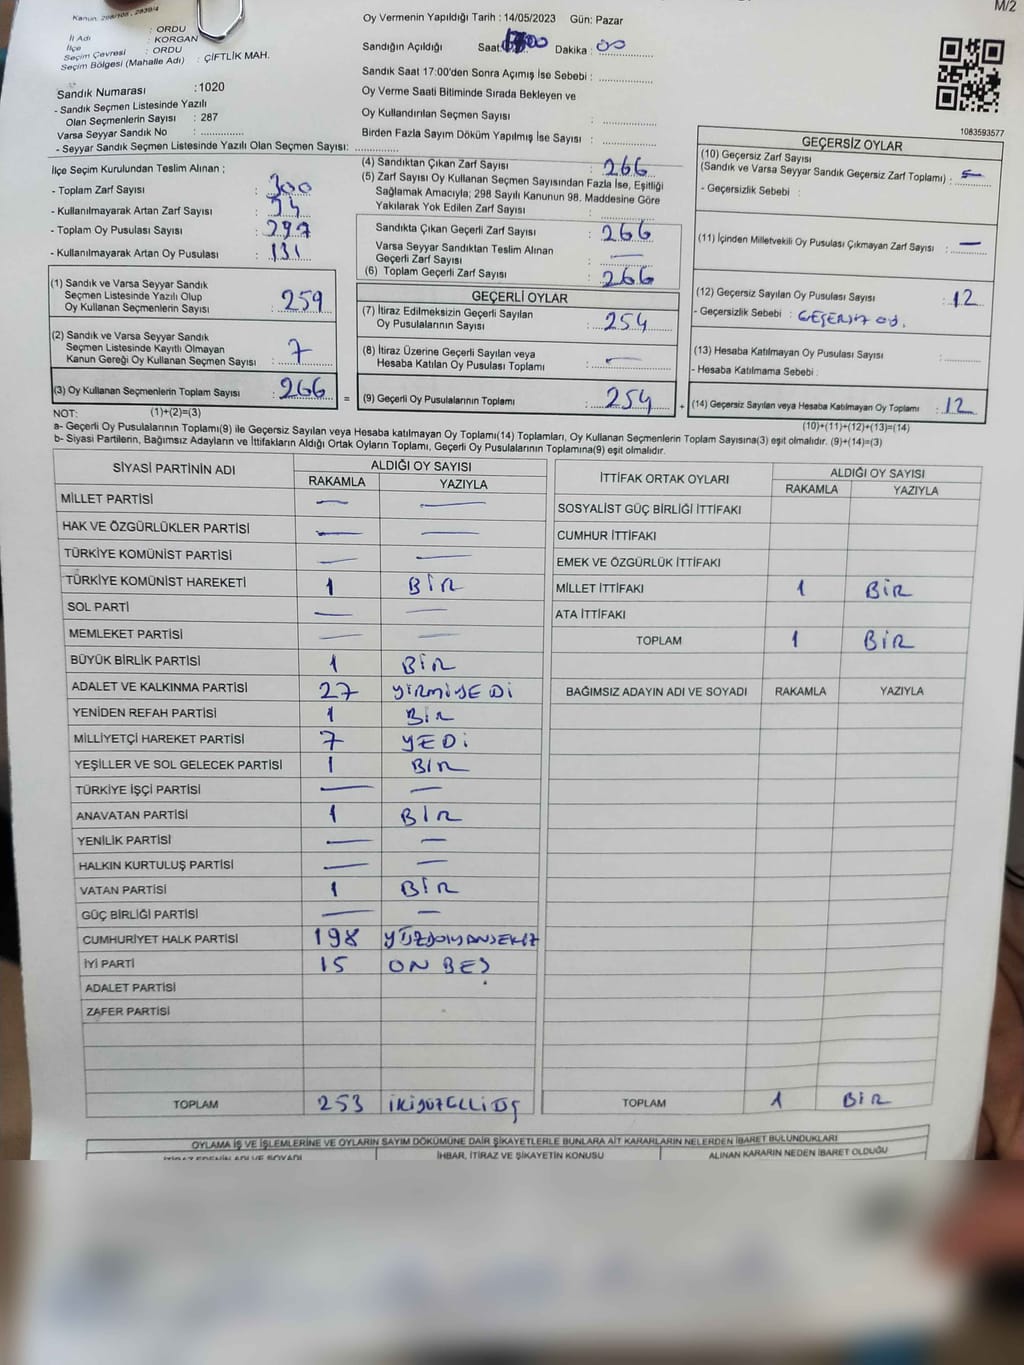 M/2
Kanun: 298/105, 2839/4
İl Adı : ORDU
İlçe : KORGAN
Seçim Çevresi : ORDU
Seçim Bölgesi (Mahalle Adı) : ÇİFTLİK MAH.
Sandık Numarası : 1020
- Sandık Seçmen Listesinde Yazılı
Olan Seçmenlerin Sayısı : 287
Varsa Seyyar Sandık No : ..............
- Seyyar Sandık Seçmen Listesinde Yazılı Olan Seçmen Sayısı: ..............
Oy Vermenin Yapıldığı Tarih : 14/05/2023 Gün: Pazar
Sandığın Açıldığı Saat: Dakika : 00
Sandık Saat 17:00'den Sonra Açımış İse Sebebi : ..............
Oy Verme Saati Bitiminde Sırada Bekleyen ve
Oy Kullandırılan Seçmen Sayısı : ..............
Birden Fazla Sayım Döküm Yapılmış İse Sayısı : ..............
1083593577
İlçe Seçim Kurulundan Teslim Alınan ;
- Toplam Zarf Sayısı : 300
- Kullanılmayarak Artan Zarf Sayısı : 34
- Toplam Oy Pusulası Sayısı : 297
- Kullanılmayarak Artan Oy Pusulası : 131
(1) Sandık ve Varsa Seyyar Sandık
Seçmen Listesinde Yazılı Olup
Oy Kullanan Seçmenlerin Sayısı : 259
(2) Sandık ve Varsa Seyyar Sandık
Seçmen Listesinde Kayıtlı Olmayan
Kanun Gereği Oy Kullanan Seçmen Sayısı : 7
(3) Oy Kullanan Seçmenlerin Toplam Sayısı : 266
(4) Sandıktan Çıkan Zarf Sayısı : 266
(5) Zarf Sayısı Oy Kullanan Seçmen Sayısından Fazla İse, Eşitliği
Sağlamak Amacıyla; 298 Sayılı Kanunun 98. Maddesine Göre
Yakılarak Yok Edilen Zarf Sayısı : ..............
Sandıkta Çıkan Geçerli Zarf Sayısı : 266
Varsa Seyyar Sandıktan Teslim Alınan
Geçerli Zarf Sayısı : —
(6) Toplam Geçerli Zarf Sayısı : 266
GEÇERLİ OYLAR
(7) İtiraz Edilmeksizin Geçerli Sayılan
Oy Pusulalarının Sayısı : 254
(8) İtiraz Üzerine Geçerli Sayılan veya
Hesaba Katılan Oy Pusulası Toplamı : —
= (9) Geçerli Oy Pusulalarının Toplamı : 254
GEÇERSİZ OYLAR
(10) Geçersiz Zarf Sayısı
(Sandık ve Varsa Seyyar Sandık Geçersiz Zarf Toplamı) : —
- Geçersizlik Sebebi :
(11) İçinden Milletvekili Oy Pusulası Çıkmayan Zarf Sayısı : —
(12) Geçersiz Sayılan Oy Pusulası Sayısı : 12
- Geçersizlik Sebebi : GEÇERSİZ OY.
(13) Hesaba Katılmayan Oy Pusulası Sayısı : ..............
- Hesaba Katılmama Sebebi :
+ (14) Geçersiz Sayılan veya Hesaba Katılmayan Oy Toplamı : 12
NOT: (1)+(2)=(3)
(10)+(11)+(12)+(13)=(14)
a- Geçerli Oy Pusulalarının Toplamı(9) ile Geçersiz Sayılan veya Hesaba katılmayan Oy Toplamı(14) Toplamları, Oy Kullanan Seçmenlerin Toplam Sayısına(3) eşit olmalıdır. (9)+(14)=(3)
b- Siyasi Partilerin, Bağımsız Adayların ve İttifakların Aldığı Ortak Oyların Toplamı, Geçerli Oy Pusulalarının Toplamına(9) eşit olmalıdır.
SİYASİ PARTİNİN ADI ALDIĞI OY SAYISI
RAKAMLA YAZIYLA
MİLLET PARTİSİ — —
HAK VE ÖZGÜRLÜKLER PARTİSİ — —
TÜRKİYE KOMÜNİST PARTİSİ — —
TÜRKİYE KOMÜNİST HAREKETİ 1 BİR
SOL PARTİ — —
MEMLEKET PARTİSİ — —
BÜYÜK BİRLİK PARTİSİ 1 BİR
ADALET VE KALKINMA PARTİSİ 27 YİRMİYEDİ
YENİDEN REFAH PARTİSİ 1 BİR
MİLLİYETÇİ HAREKET PARTİSİ 7 YEDİ
YEŞİLLER VE SOL GELECEK PARTİSİ 1 BİR
TÜRKİYE İŞÇİ PARTİSİ — —
ANAVATAN PARTİSİ 1 BİR
YENİLİK PARTİSİ — —
HALKIN KURTULUŞ PARTİSİ — —
VATAN PARTİSİ 1 BİR
GÜÇ BİRLİĞİ PARTİSİ — —
CUMHURİYET HALK PARTİSİ 198
İYİ PARTİ 15 ON BEŞ
ADALET PARTİSİ
ZAFER PARTİSİ
TOPLAM 253 İKİYÜZELLİÜÇ
İTTİFAK ORTAK OYLARI ALDIĞI OY SAYISI
RAKAMLA YAZIYLA
SOSYALİST GÜÇ BİRLİĞİ İTTİFAKI
CUMHUR İTTİFAKI
EMEK VE ÖZGÜRLÜK İTTİFAKI
MİLLET İTTİFAKI 1 BİR
ATA İTTİFAKI
TOPLAM 1 BİR
BAĞIMSIZ ADAYIN ADI VE SOYADI RAKAMLA YAZIYLA
TOPLAM 1 BİR
OYLAMA İŞ VE İŞLEMLERİNE VE OYLARIN SAYIM DÖKÜMÜNE DAİR ŞİKAYETLERLE BUNLARA AİT KARARLARIN NELERDEN İBARET BULUNDUKLARI
İTİRAZ EDENİN ADI VE SOYADI İHBAR, İTİRAZ VE ŞİKAYETİN KONUSU ALINAN KARARIN NEDEN İBARET OLDUĞU